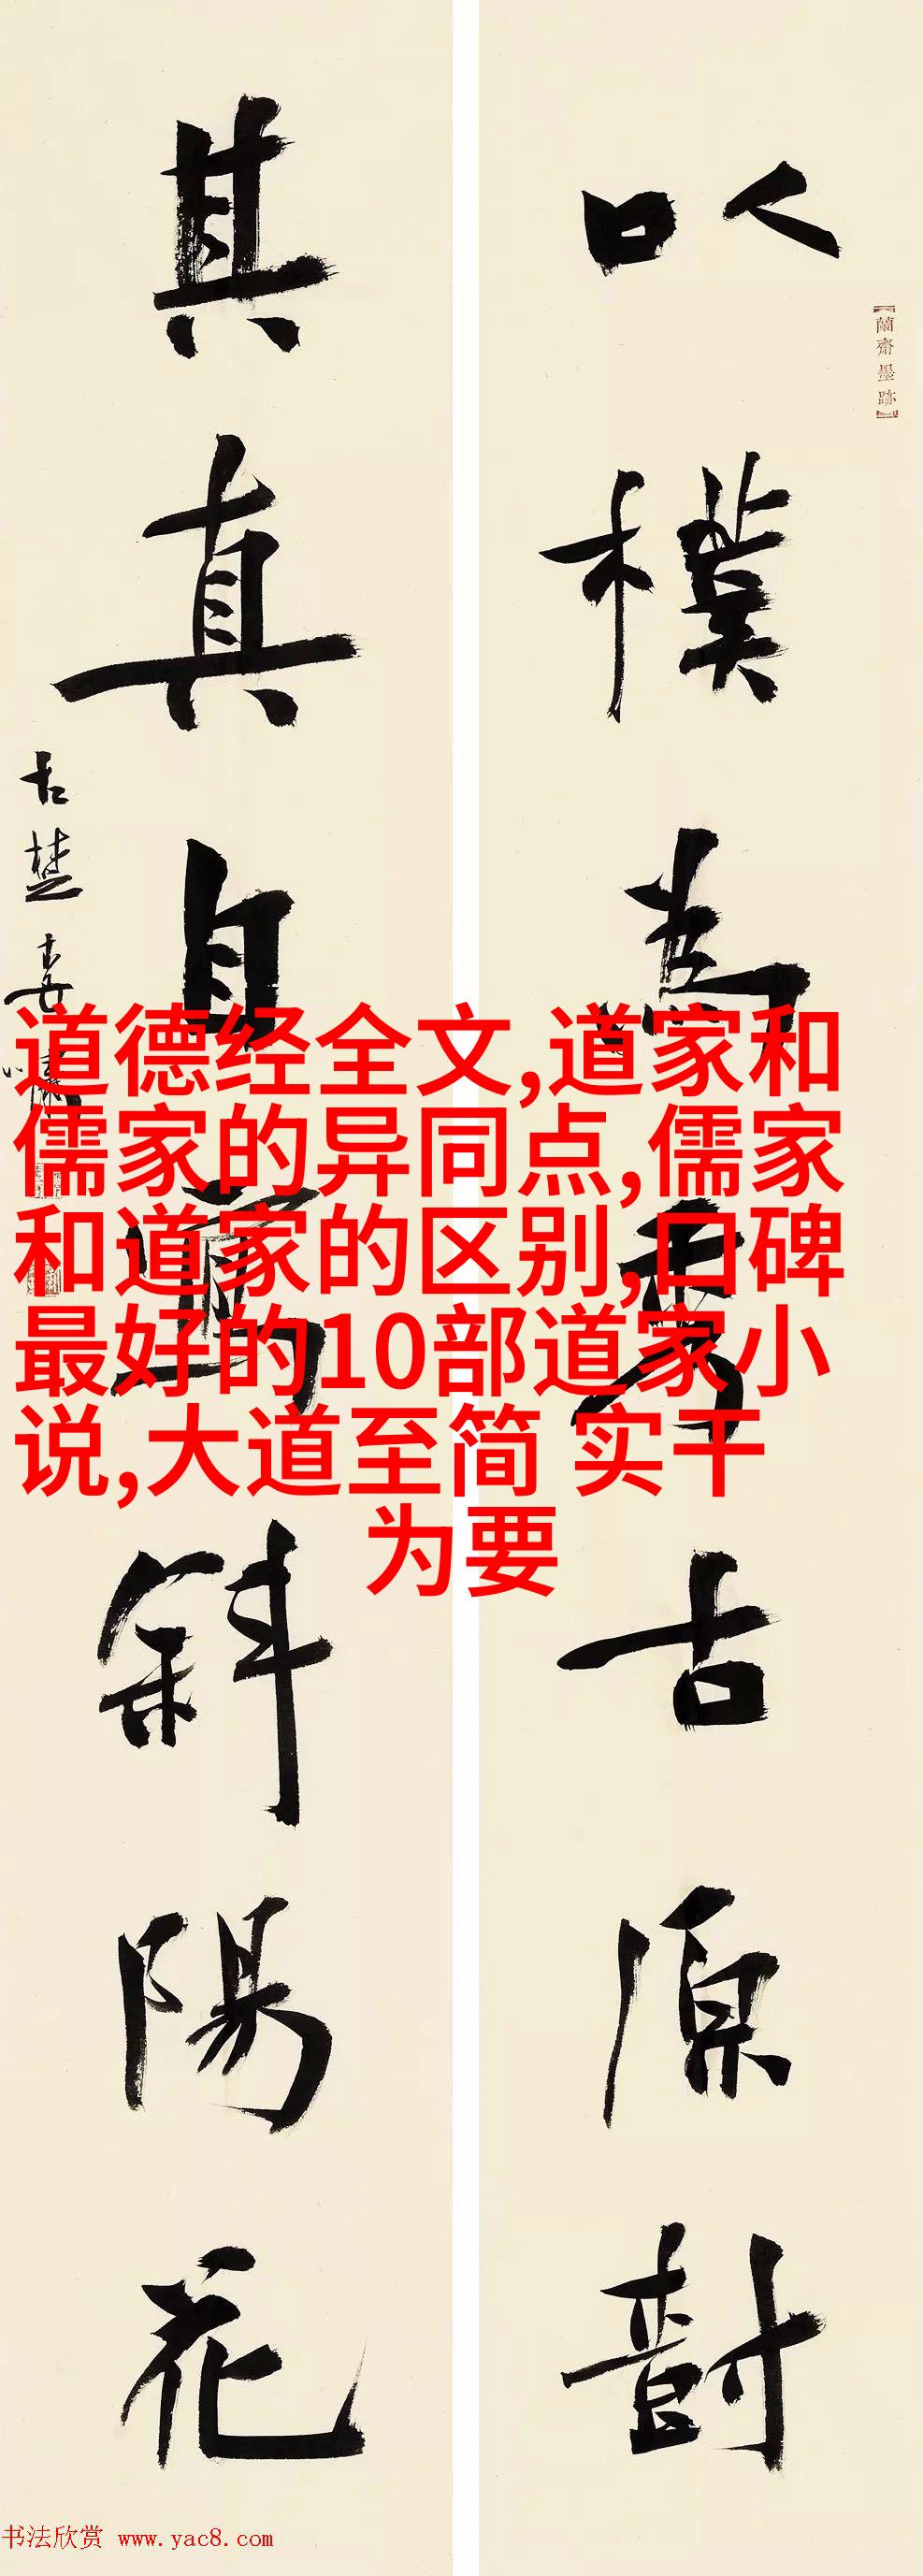 以樸為秀古原尌
【蘭齋墨跡】
其真自寫斜陽花
古楚
道德经全文,道家和
儒家的异同点,儒家
和道家的区别,口碑
最好的10部道家小
说,大道至简 实干
为要
书法欣赏 www.yac8.com